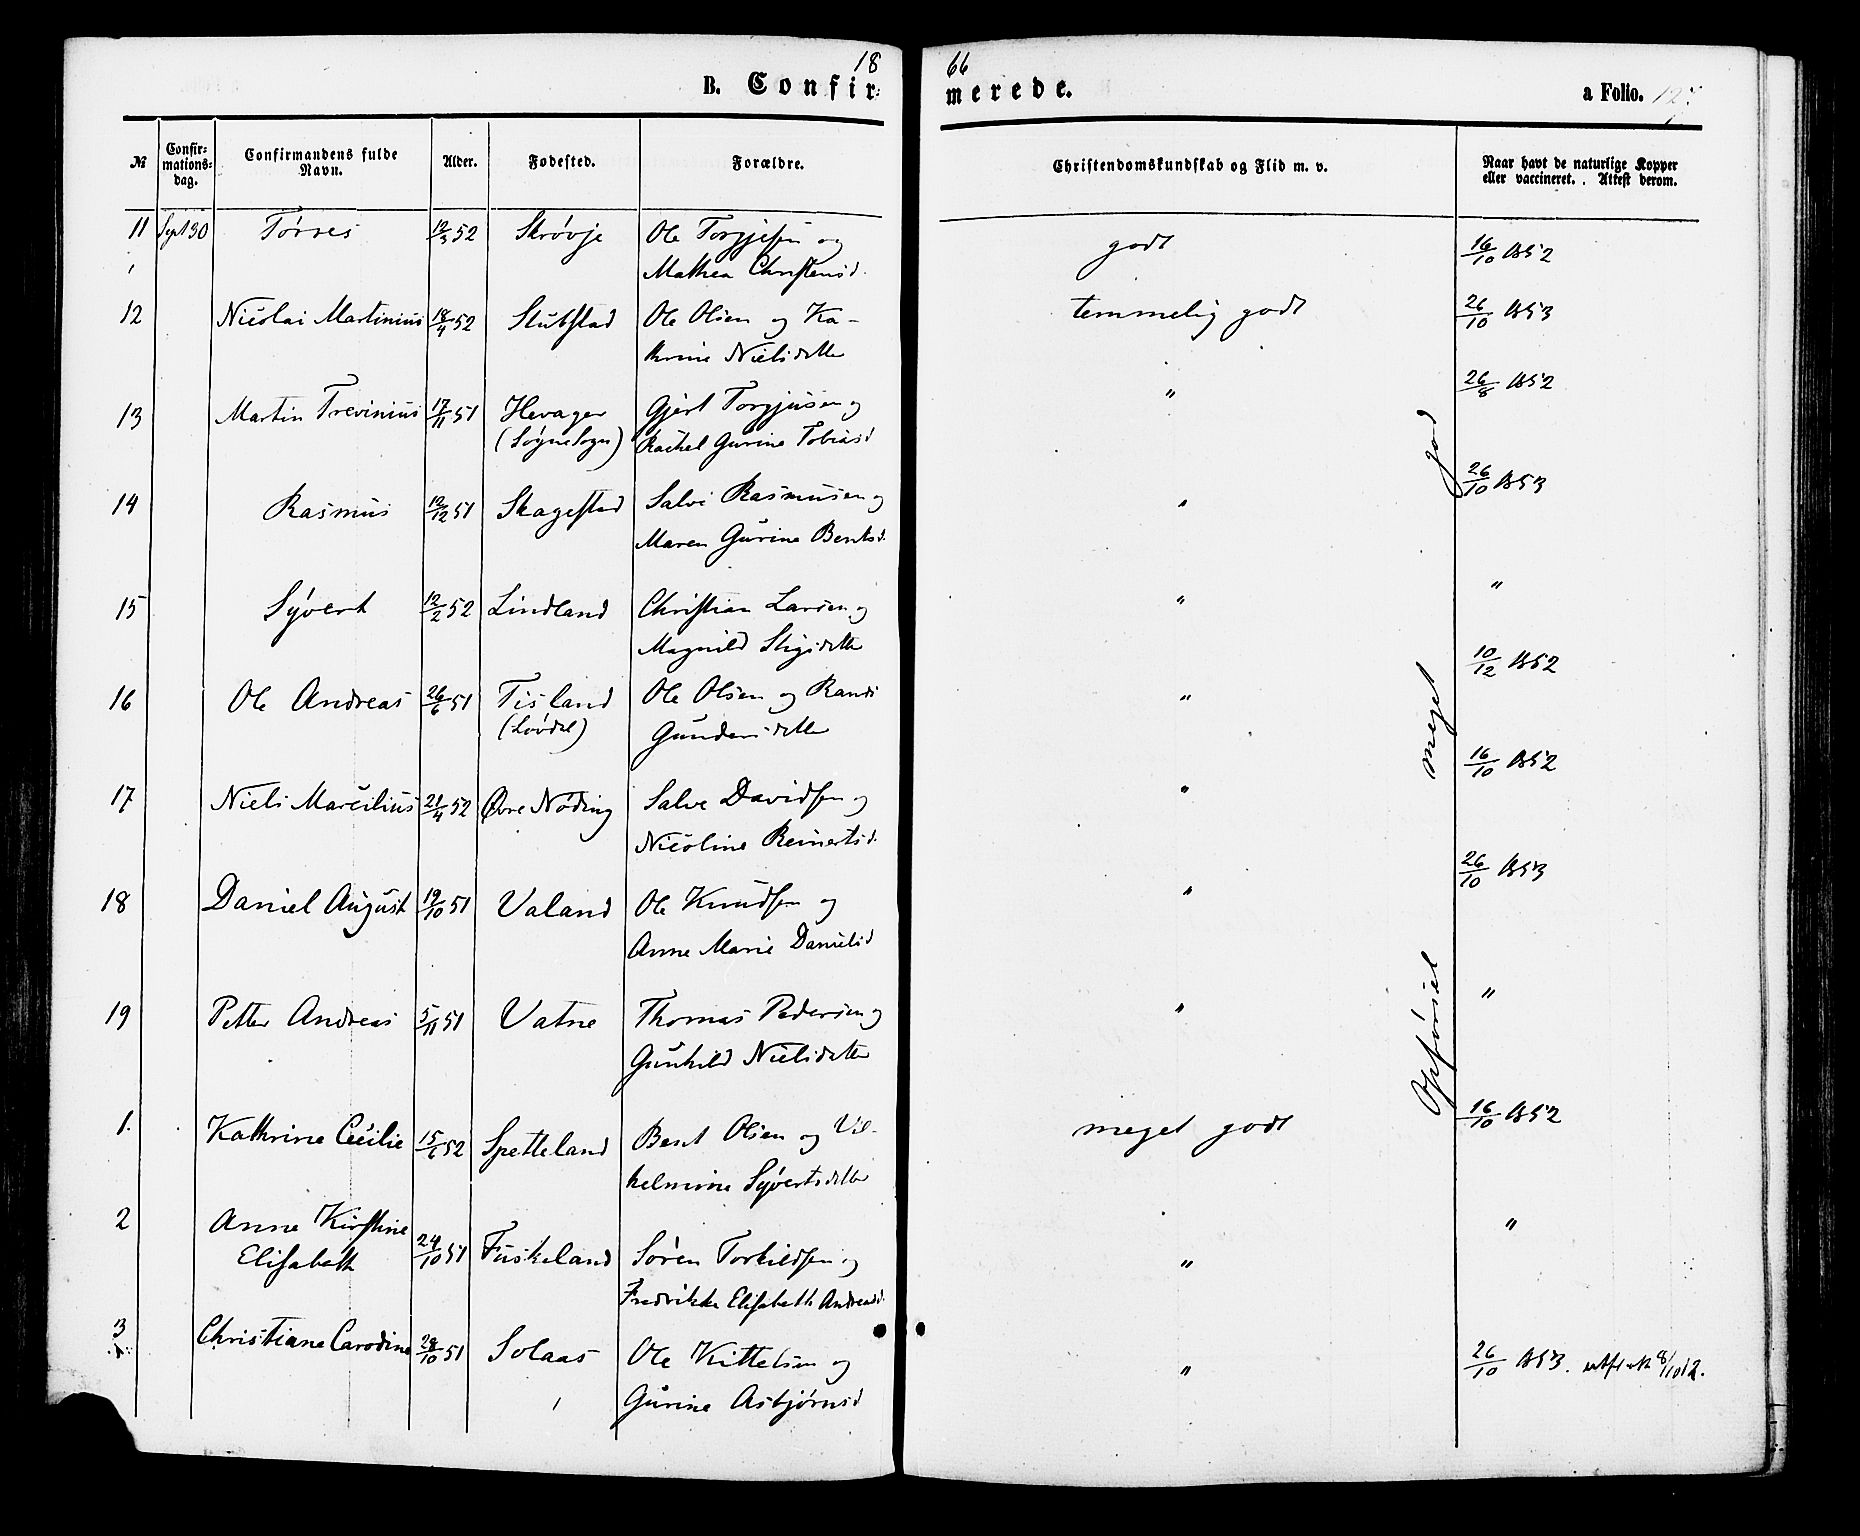 18 66
B. Confir- merede. a Folio. 127
№ Confir-mations-dag. Confirmandens fulde Navn. Alder. Fødested. Forældre. Christendomskundskab og Flid m. v. Naar havt de naturlige Kopper eller vaccineret. Attest derom.
11 Sept 30 Tørres 12/3 52 Skrøvje Ole Torgjesen og godt 16/10 1852
Mathea Christensd.
12 Nicolai Martinius 18/4 52 Stubstad Ole Olsen og Ka- temmelig godt 26/10 1853
thrine Nielsdatter
13 Martin Trevinius 17/11 51 Hevager Gjert Torgjusen og " 26/8 1852
(Søgne Sogn) Rachel Gurine Tobiasd
14 Rasmus 12/12 51 Skagestad Salvi Rasmusen og " 26/10 1853
Maren Gurine Bentsd.
15 Syvert 12/2 52 Lindland Christian Larsen og " "
Magnild Stigsdatter
16 Ole Andreas 26/6 51 Tisland Ole Olsen og Randi " 10/12 1852
(Løvdal) Gundersdatter
17 Niels Marcilius 21/4 52 Øvre Nøding Salve Davidsen og " 16/10 1852
Nicoline Reinertsd.
18 Daniel August 19/10 51 Valand Ole Knudsen og " 26/10 1853
Anne Marie Danielsd
19 Petter Andreas 5/11 51 Vatne Thomas Pedersen og " "
Gunhild Nielsdatter
1. Kathrine Cecilie 15/6 52 Spetteland Bent Olsen og Vil- meget godt 16/10 1852
helmine Syvertsdatter
2 Anne Kirstine
Elisabeth 24/10 51 Fuskeland Søren Torkildsen og " "
Fredrikke Elisabeth Andreasd.
3 Christiane Carodine 28/10 51 Solaas Ole Kittelsen og " 26/10 1853. 8/10 12.
Gurine Asbjørnsd
Opførsel meget god